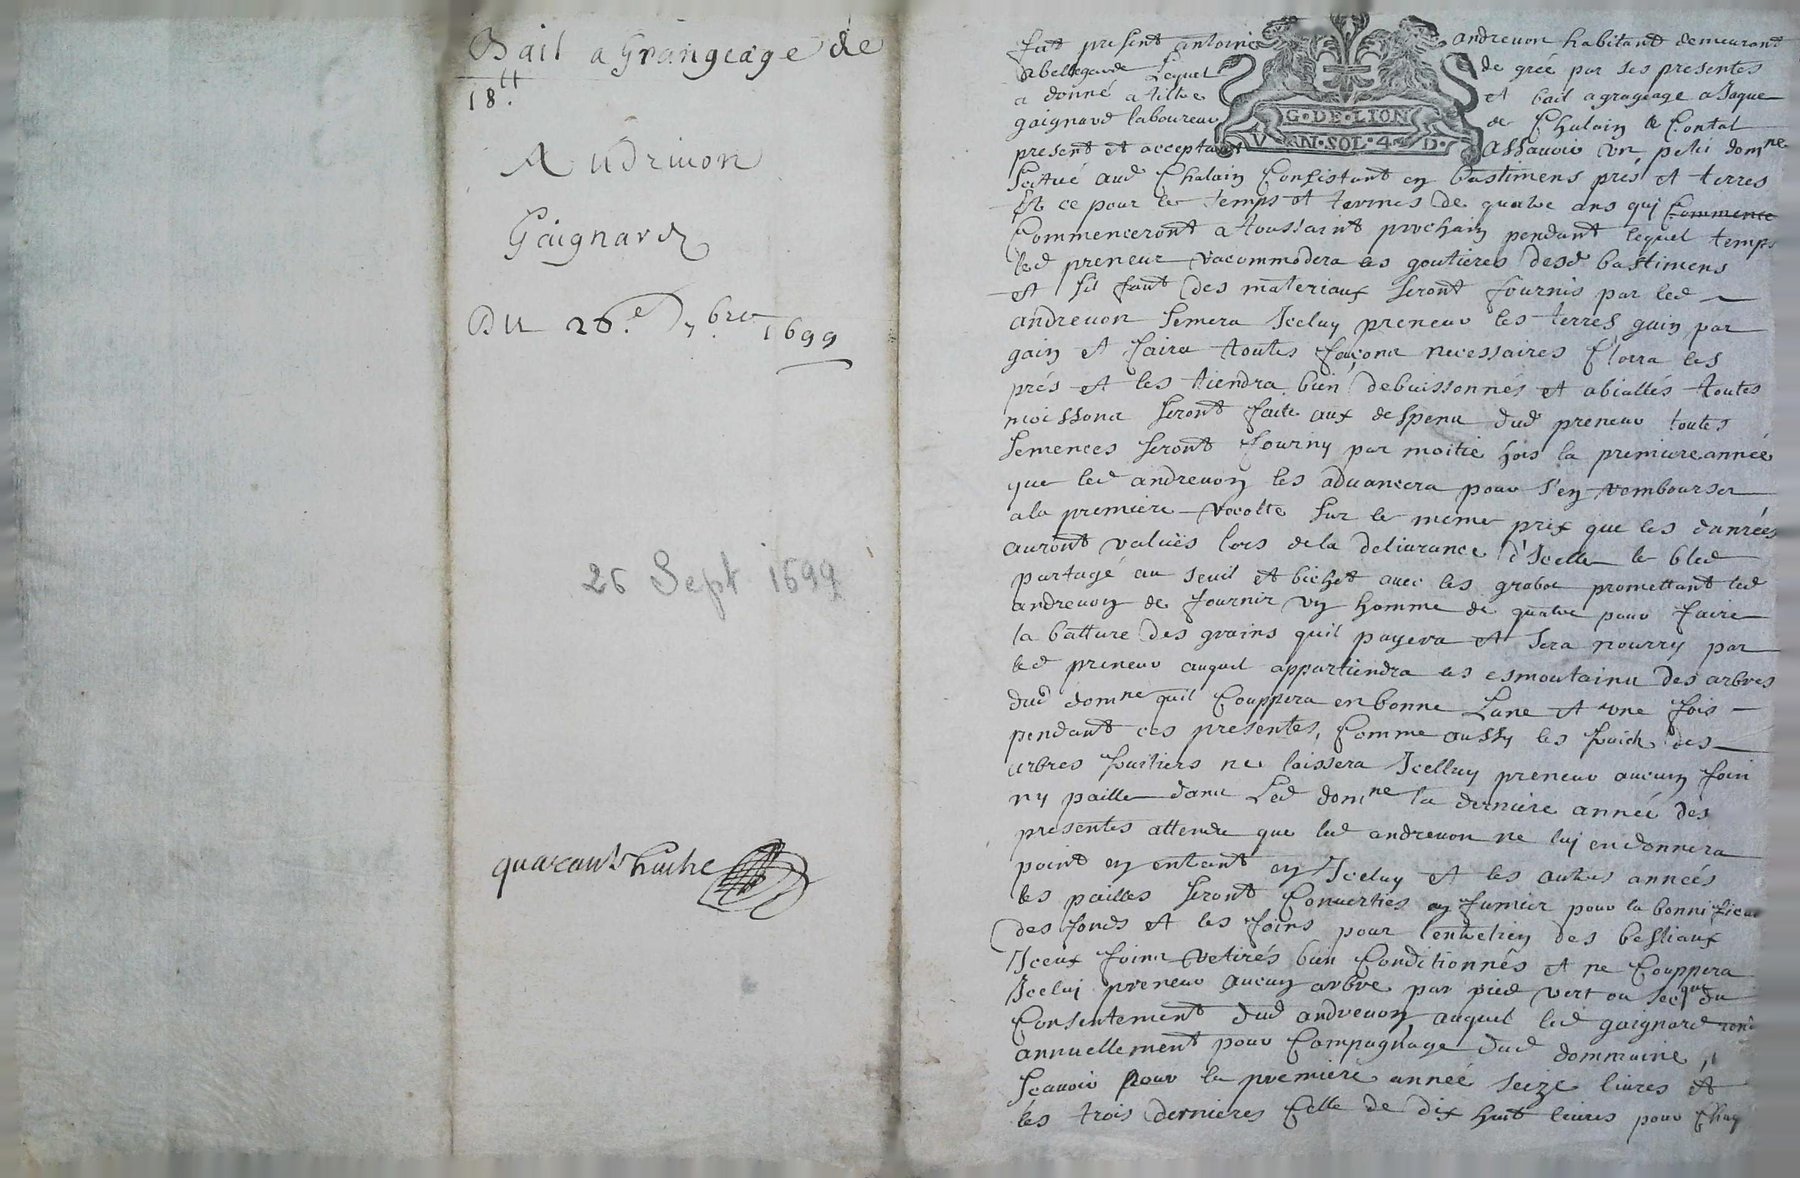 Bail a Grangeage de
18.tt
Andrivon
Gaignard
Du 26.e 7.bre 1699
26 Sept 1699
quarante huiche
G·DE·LION
VAN·SOL·4·D·
fut present antoine andreuon habitant demeurant
a bellegarde Lequel de gréé par ses presentes
a donné a tiltre et bail a grageage a Jaque
gaignard laboureur de Chalain le Contal
present et acceptant Assauoir un petit domne
scitué aud Chalain Consistant en bastimens prés et terres
Et ce pour le temps et termes de quatre ans qui Commence
Commenceront a toussaint prochain pendant lequel temps
led preneur racommodera les goutieres desd bastimens
et sil faut des materiaux seront fournis par led
andreuon semera Iceluy preneur les terres gain par
gain et faira toutes façons necessaires Clorra les
prés et les tiendra bien debuissonnés et abiallés toutes
moissons seront faite aux despens dud preneur toutes
semences seront fourny par moitie hors la premiere année
que led andreuon les aduancera pour s'en rembourser
a la premiere recolte sur le méme prix que les danrées
auront valués lors de la deliurance d'Icelle le bled
partagé au seuil et bichet auec les grabot promettant led
andreuon de fournir un homme de quatre pour faire
la batture des grains quil payera et sera nourry par
led preneur auquel appartiendra les esmoutains des arbres
dud domne quil Couppera en bonne Lune et une fois
pendant ces presentes, Comme aussy les fruicts des
arbres fruitiers ne laissera Icelluy preneur aucun foin
ny paille dans Led domne la derniere année des
presentes attendu que led andreuon ne luy en donnera
point en entrant en Iceluy et les autres années
les pailles seront Conuerties en fumier pour la bonnificaon
des fonds et les foins pour l'entretien des bestiaux
Iceux foins retirés bien Conditionnés et ne Couppera
Icelui preneur aucun arbre par pied vert ou sec que du
Consentement dud andreuon auquel led gaignard
annuellement pour Compagnage dud dommaine,
Scauoir pour la premiere année seize liures et
les trois dernieres Celle de dix huit liures pour Chaq